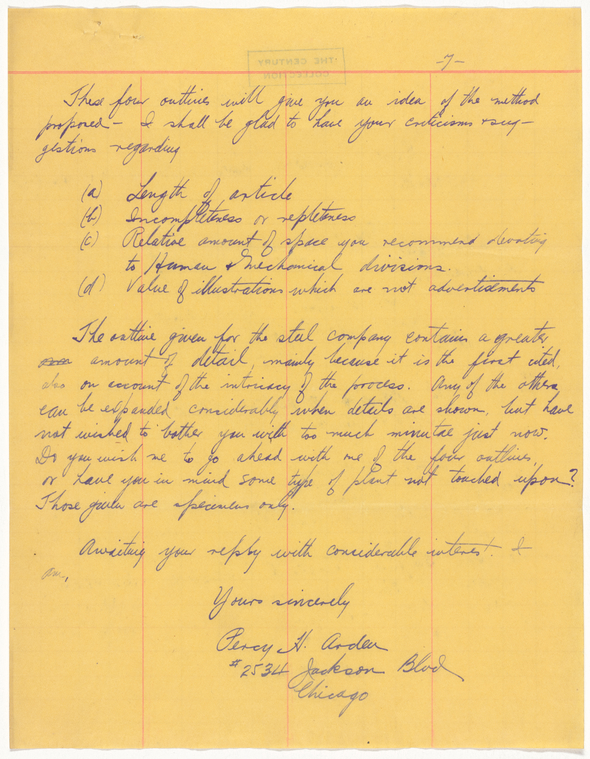 -7-
THE CENTURY
COLLECTION
These four outlines will give you an idea of the method
proposed - I shall be glad to have your criticisms & sug-
gestions regarding
(a) Length of article
(b) Incompleteness or repleteness
(c) Relative amount of space you recommend devoting
to Human & Mechanical divisions.
(d) Value of illustrations which are not advertisements
The outline given for the steel company contains a greater
amount of detail, mainly because it is the first cited,
also on account of the intricacy of the process. Any of the others
can be expanded considerably when details are shown, but have
not wished to bother you with too much minutae just now.
Do you wish me to go ahead with one of the four outlines
or have you in mind some type of plant not touched upon?
Those given are specimens only.
Awaiting your reply with considerable interest. I
am,
Yours sincerely
Percy H. Arden
#2534 Jackson Blvd
Chicago